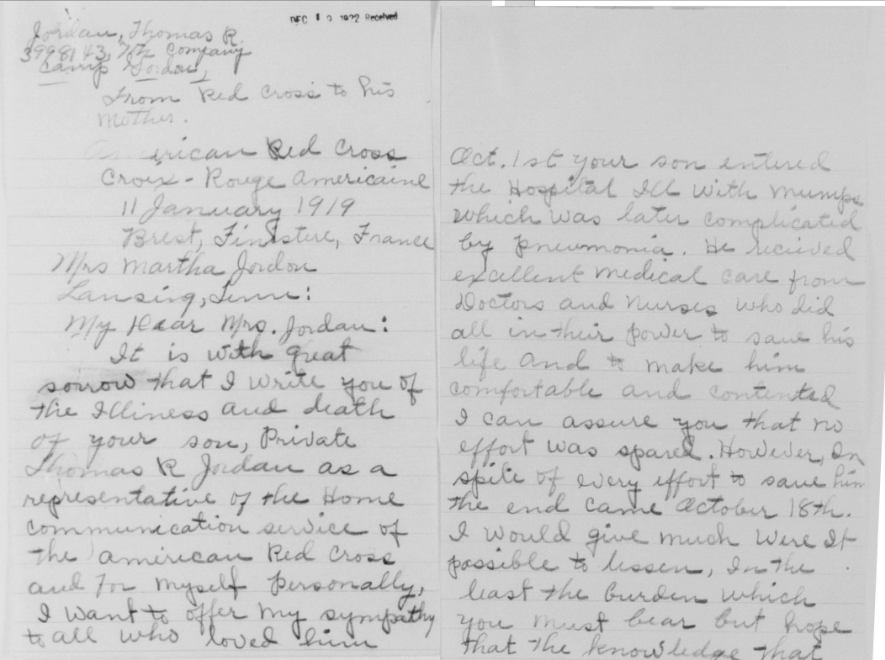 DEC 1 1922 Received
Jordan, Thomas R.
3998143, 7th Company
Camp Gordon,
From Red Cross to his
Mother.
American Red Cross
Croix-Rouge Americaine
11 January 1919
Brest, Finistere, France
Mrs Martha Jordon
Lansing, Tenn:
My Dear Mrs. Jordan:
It is with great
sorrow that I write you of
the Illiness and death
of your son, Private
Thomas R Jordan as a
representative of the Home
communication service of
the american Red Cross
and for myself personally,
I want to offer my sympathy
to all who loved him
Oct. 1st your son entered
the Hospital Ill with mumps
which was later complicated
by pneumonia. He recieved
excellent medical care from
Doctors and Nurses who did
all in their power to save his
life and to make him
comfortable and contented
I can assure you that no
effort was spared. However, In
spite of every effort to save him
the end came October 18th.
I would give much were It
possible to lessen, In the
least the burden which
you must bear but hope
that the knowledge that